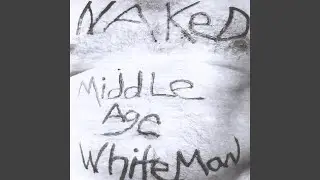 NAKeD
MiddLe
Age
White Man